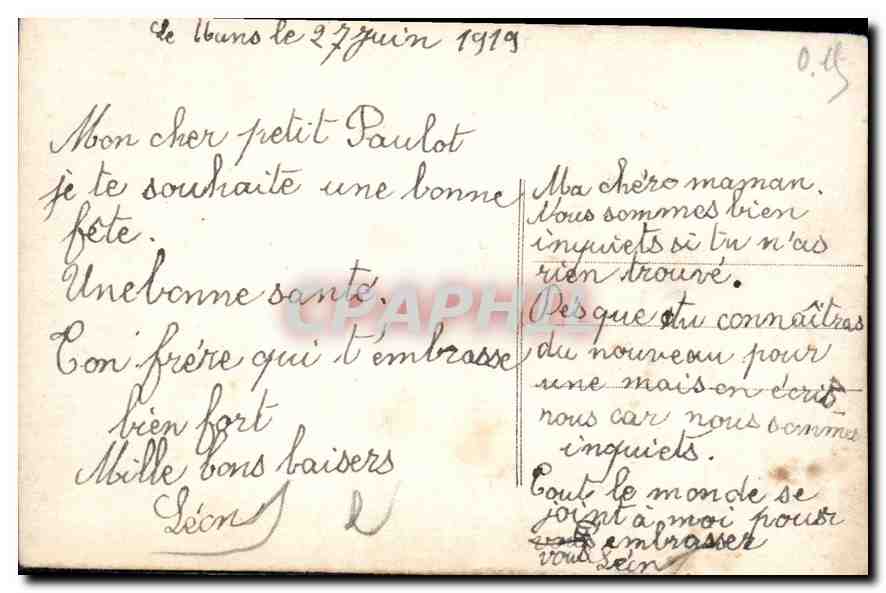 Le Mans le 27 Juin 1919
Mon cher petit Paulot
je te souhaite une bonne
fête.
Une bonne santé.
Ton frére qui t'émbrasse
bien fort
Mille bons baisers
Léon
Ma chéro maman.
Nous sommes bien
inquiets si tu n'as
rien trouvé.
Dés que tu connaîtras
du nouveau pour
une mais on écrit-
nous car nous sommes
inquiets.
Tout le monde se
joint à moi pour
embrasser
vous Léon
CPAPHIL